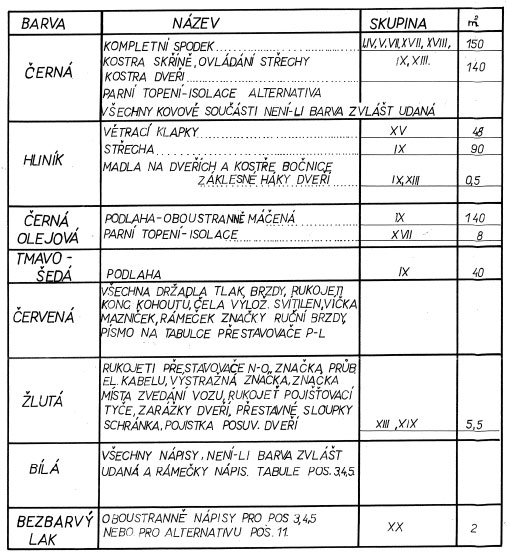 BARVA NÁZEV SKUPINA m²
KOMPLETNÍ SPODEK I,IV,V,VII,XVII,XVIII, 150
ČERNÁ KOSTRA SKŘÍNĚ, OVLÁDÁNÍ STŘECHY IX, XIII. 140
KOSTRA DVEŘÍ
PARNÍ TOPENÍ-ISOLACE ALTERNATIVA
VŠECHNY KOVOVÉ SOUČÁSTI NENÍ-LI BARVA ZVLÁŠT UDANÁ
HLINÍK VĚTRACÍ KLAPKY XV 48
STŘECHA IX 90
MADLA NA DVEŘÍCH A KOSTŘE BOČNICE
ZÁKLESNÉ HÁKY DVEŘÍ IX,XIII 0,5
ČERNÁ PODLAHA-OBOUSTRANNĚ MÁČENÁ IX 140
OLEJOVÁ PARNÍ TOPENÍ-ISOLACE XVII 8
TMAVO-
ŠEDÁ PODLAHA IX 40
ČERVENÁ VŠECHNA DRŽADLA TLAK, BRZDY, RUKOJETI
KONC KOHOUTU, ČELA VÝLOŽ. SVÍTILEN, VÍČKA
MAZNIČEK, RÁMEČEK ZNAČKY RUČNÍ BRZDY,
PÍSMO NA TABULCE PŘESTAVOVAČE P-L
ŽLUTÁ RUKOJETI PŘESTAVOVAČE N-O, ZNAČKA PRŮB
EL. KABELU, VÝSTRAŽNÁ ZNAČKA, ZNAČKA
MÍSTA ZVEDÁNÍ VOZU, RUKOJEŤ POJIŠŤOVACÍ
TYČE, ZARÁŽKY DVEŘÍ, PŘESTAVNÉ SLOUPKY
SCHRÁNKA, POJISTKA POSUV. DVEŘÍ XIII ,XIX 5,5
BÍLÁ VŠECHNY NÁPISY, NENÍ-LI BARVA ZVLÁŠT
UDANÁ A RÁMEČKY NÁPIS. TABULE POS. 3,4,5.
BEZBARVÝ OBOUSTRANNĚ NÁPISY PRO POS 3,4,5 XX 2
LAK NEBO PRO ALTERNATIVU POS. 11.